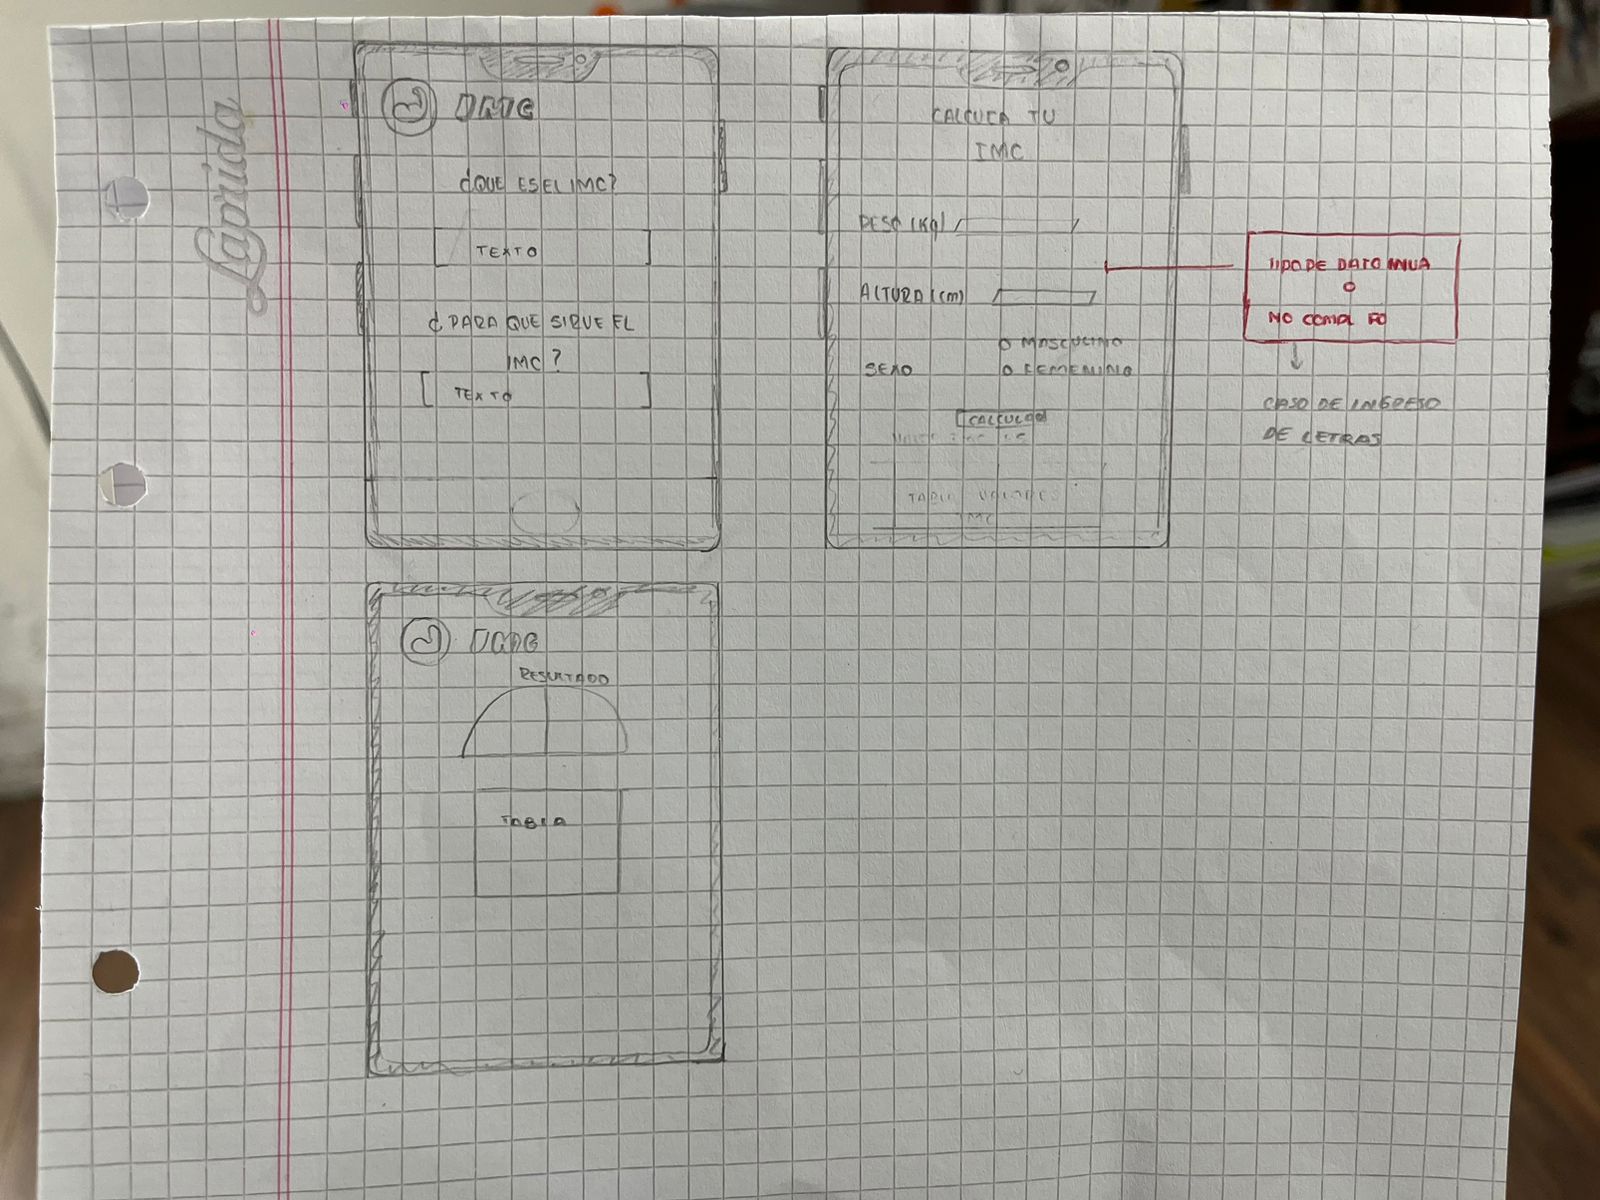 Laprida
¿QUE ES EL IMC?
TEXTO
¿PARA QUE SIRVE EL
IMC?
TEXTO
CALCULA TU
IMC
PESO (Kg)
ALTURA (cm)
SEXO
O MASCULINO
O FEMENINO
CALCULAR
TABLA VALORES
IMC
TIPO DE DATO
O
NO
CASO DE INGRESO
DE LETRAS
RESULTADO
TABLA